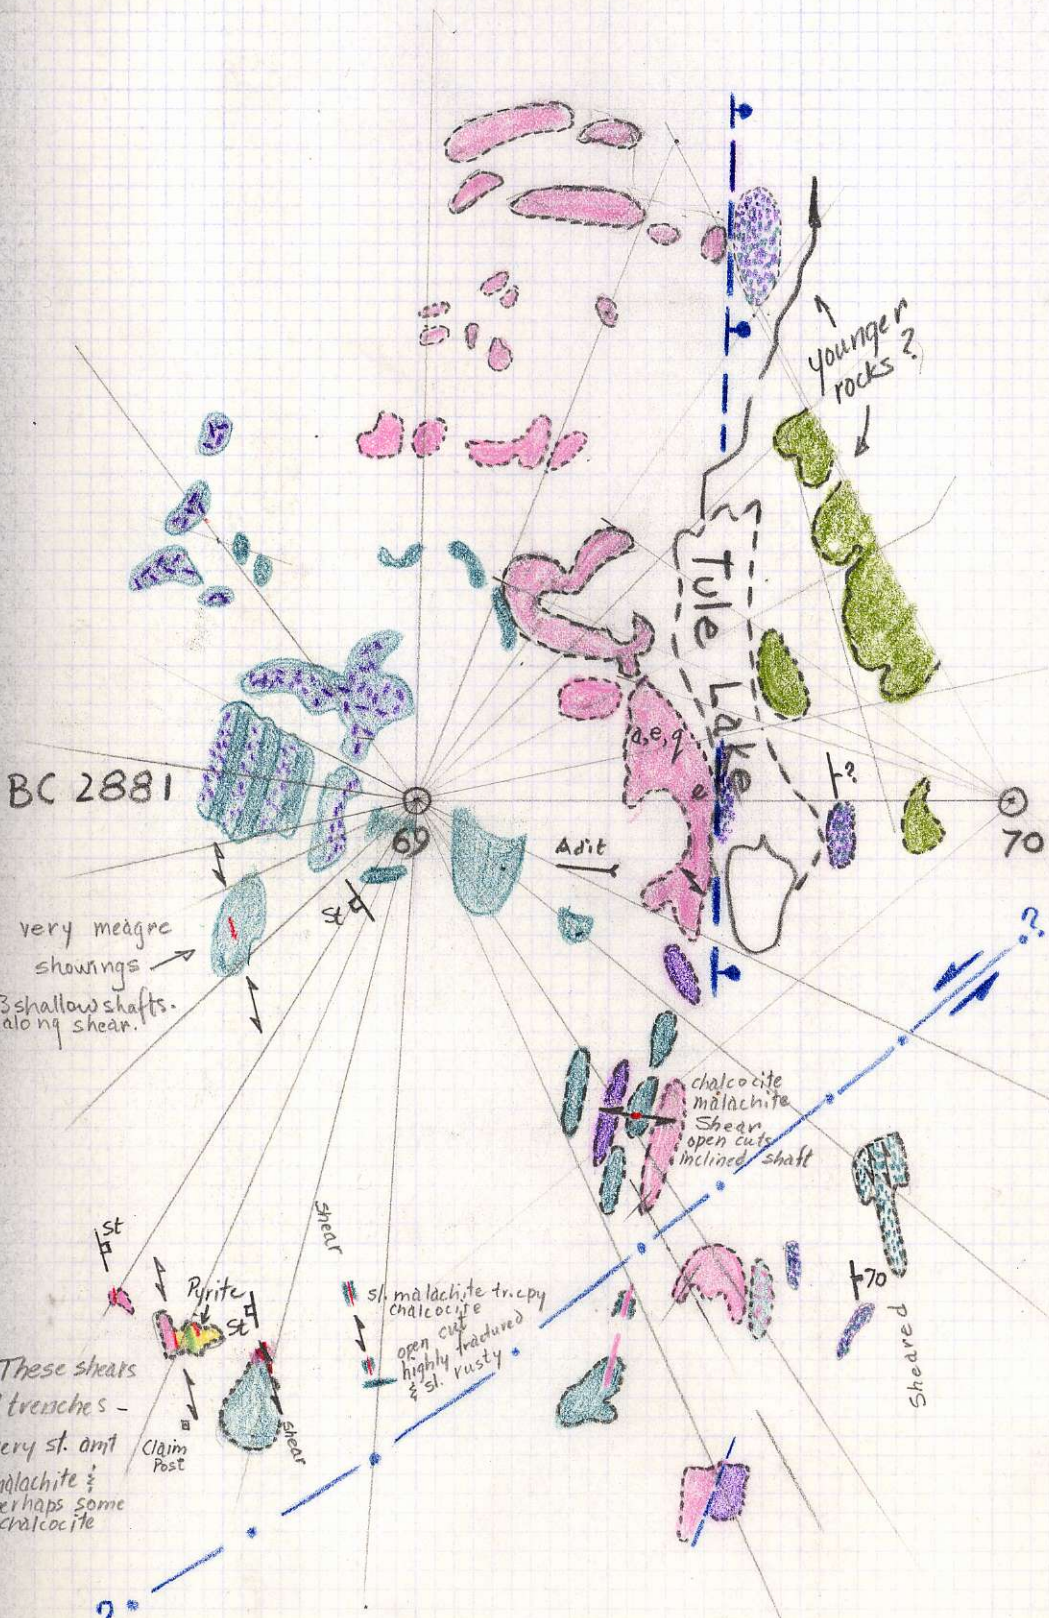 younger
rocks ?
Tule Lake
a,e,q
e
BC 2881
69
70
?
Adit
St
very meagre
showings
3 shallow shafts.
along shear.
?
chalcocite
malachite
Shear
open cuts
inclined shaft
St
Shear
Pyrite
St
sl. malachite tr. cpy
chalcocite
open cut
highly fractured
& sl. rusty
70
Sheared
These shears
trenches -
ery sl. amt
malachite &
perhaps some
chalcocite
Claim
Post
Shear
?